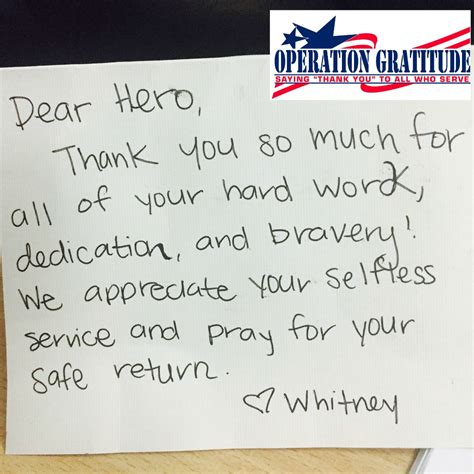 OPERATION GRATITUDE
SAYING "THANK YOU" TO ALL WHO SERVE
Dear Hero,
Thank you so much for
all of your hard work,
dedication, and bravery!
We appreciate your selfless
service and pray for your
safe return.
♡ Whitney